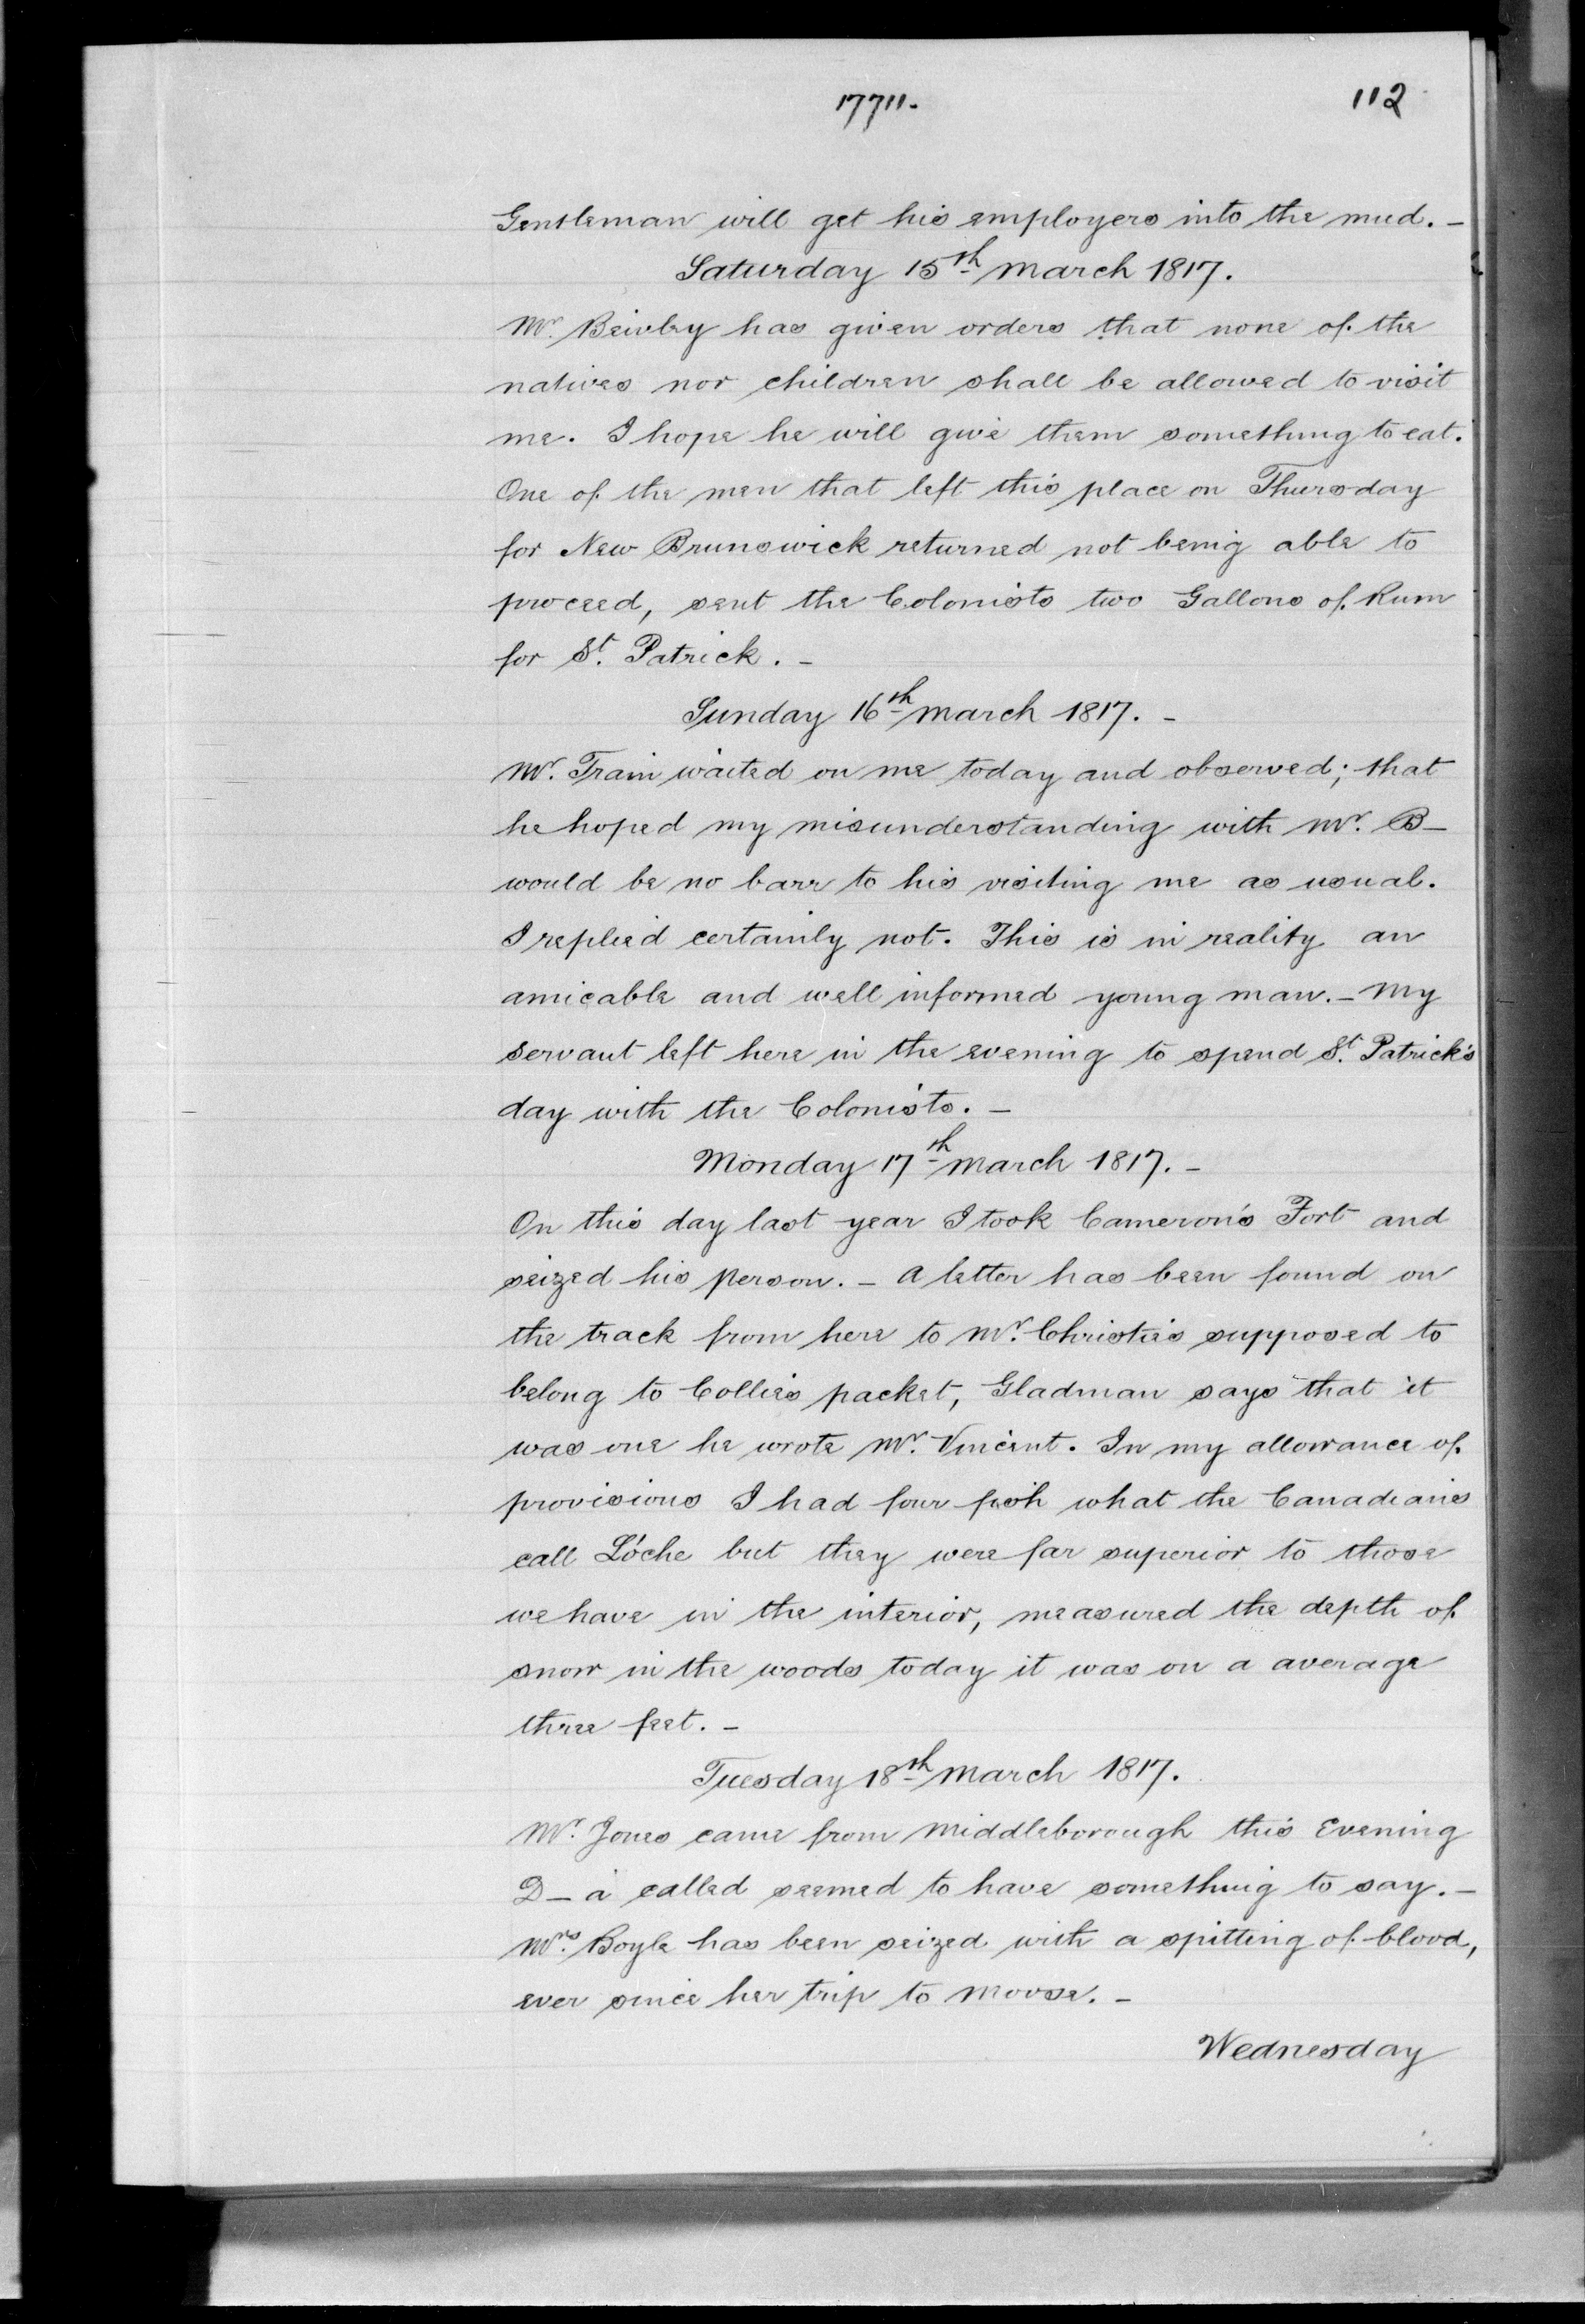 17711.
112
Gentleman will get his employers into the mud. -
Saturday 15th March 1817.
Mr. Beioley has given orders that none of the
natives nor children shall be allowed to visit
me. I hope he will give them something to eat.
One of the men that left this place on Thursday
for New Brunswick returned not being able to
proceed, sent the Colonists two Gallons of Rum
for St. Patrick. -
Sunday 16th March 1817. -
Mr. Train waited on me today and observed; that
he hoped my misunderstanding with Mr. B-
would be no barr to his visiting me as usual.
I replied certainly not. This is in reality an
amicable and well informed young man. - My
servant left here in the evening to spend St. Patrick's
day with the Colonists. -
Monday 17th March 1817. -
On this day last year I took Cameron's Fort and
seized his person. - A letter has been found on
the track from here to Mr. Christie's supposed to
belong to Collie's packet, Gladman says that it
was one he wrote Mr. Vincent. In my allowance of
provisions I had four fish what the Canadians
call Lóche but they were far superior to those
we have in the interior, measured the depth of
snow in the woods today it was on a average
three feet. -
Tuesday 18th March 1817.
Mr. Jones came from Middleborough this Evening
D - a called seemed to have something to say. -
Mrs. Boyle has been seized with a spitting of blood,
ever since her trip to Moose. -
Wednesday